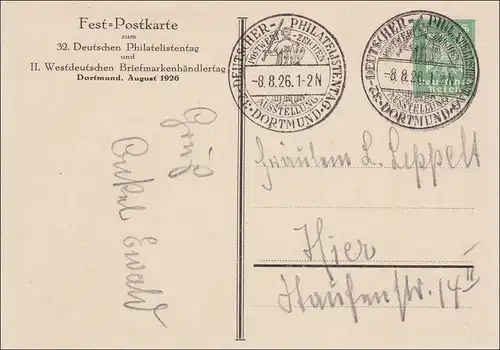 Fest=Postkarte
zum
32. Deutschen Philatelistentag
und
II. Westdeutschen Briefmarkenhändlertag
Dortmund, August 1926
Gruß
Onkel Ewald
32. DEUTSCHER PHILATELISTENTAG
POSTWERTZEICHEN
-8.8.26.1-2N
AUSSTELLUNG
DORTMUND
32. DEUTSCHER PHILATELISTENTAG
-8.8.26.1-2N
AUSSTELLUNG
DORTMUND
5
Reich
Fräulein L. Leppelt
Hier
Staufenstr. 14 II